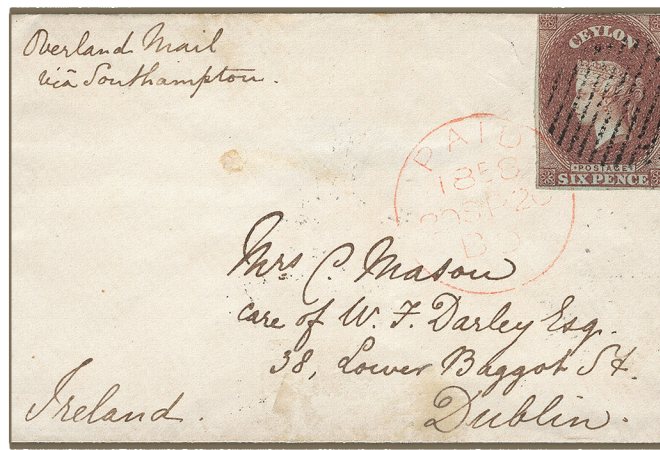 Overland Mail
viâ Southampton.
CEYLON
POSTAGE
SIX PENCE
PAID
1858
Mrs C. Mason
care of W. F. Darley Esq.
38, Lower Baggot St.
Dublin.
Ireland.